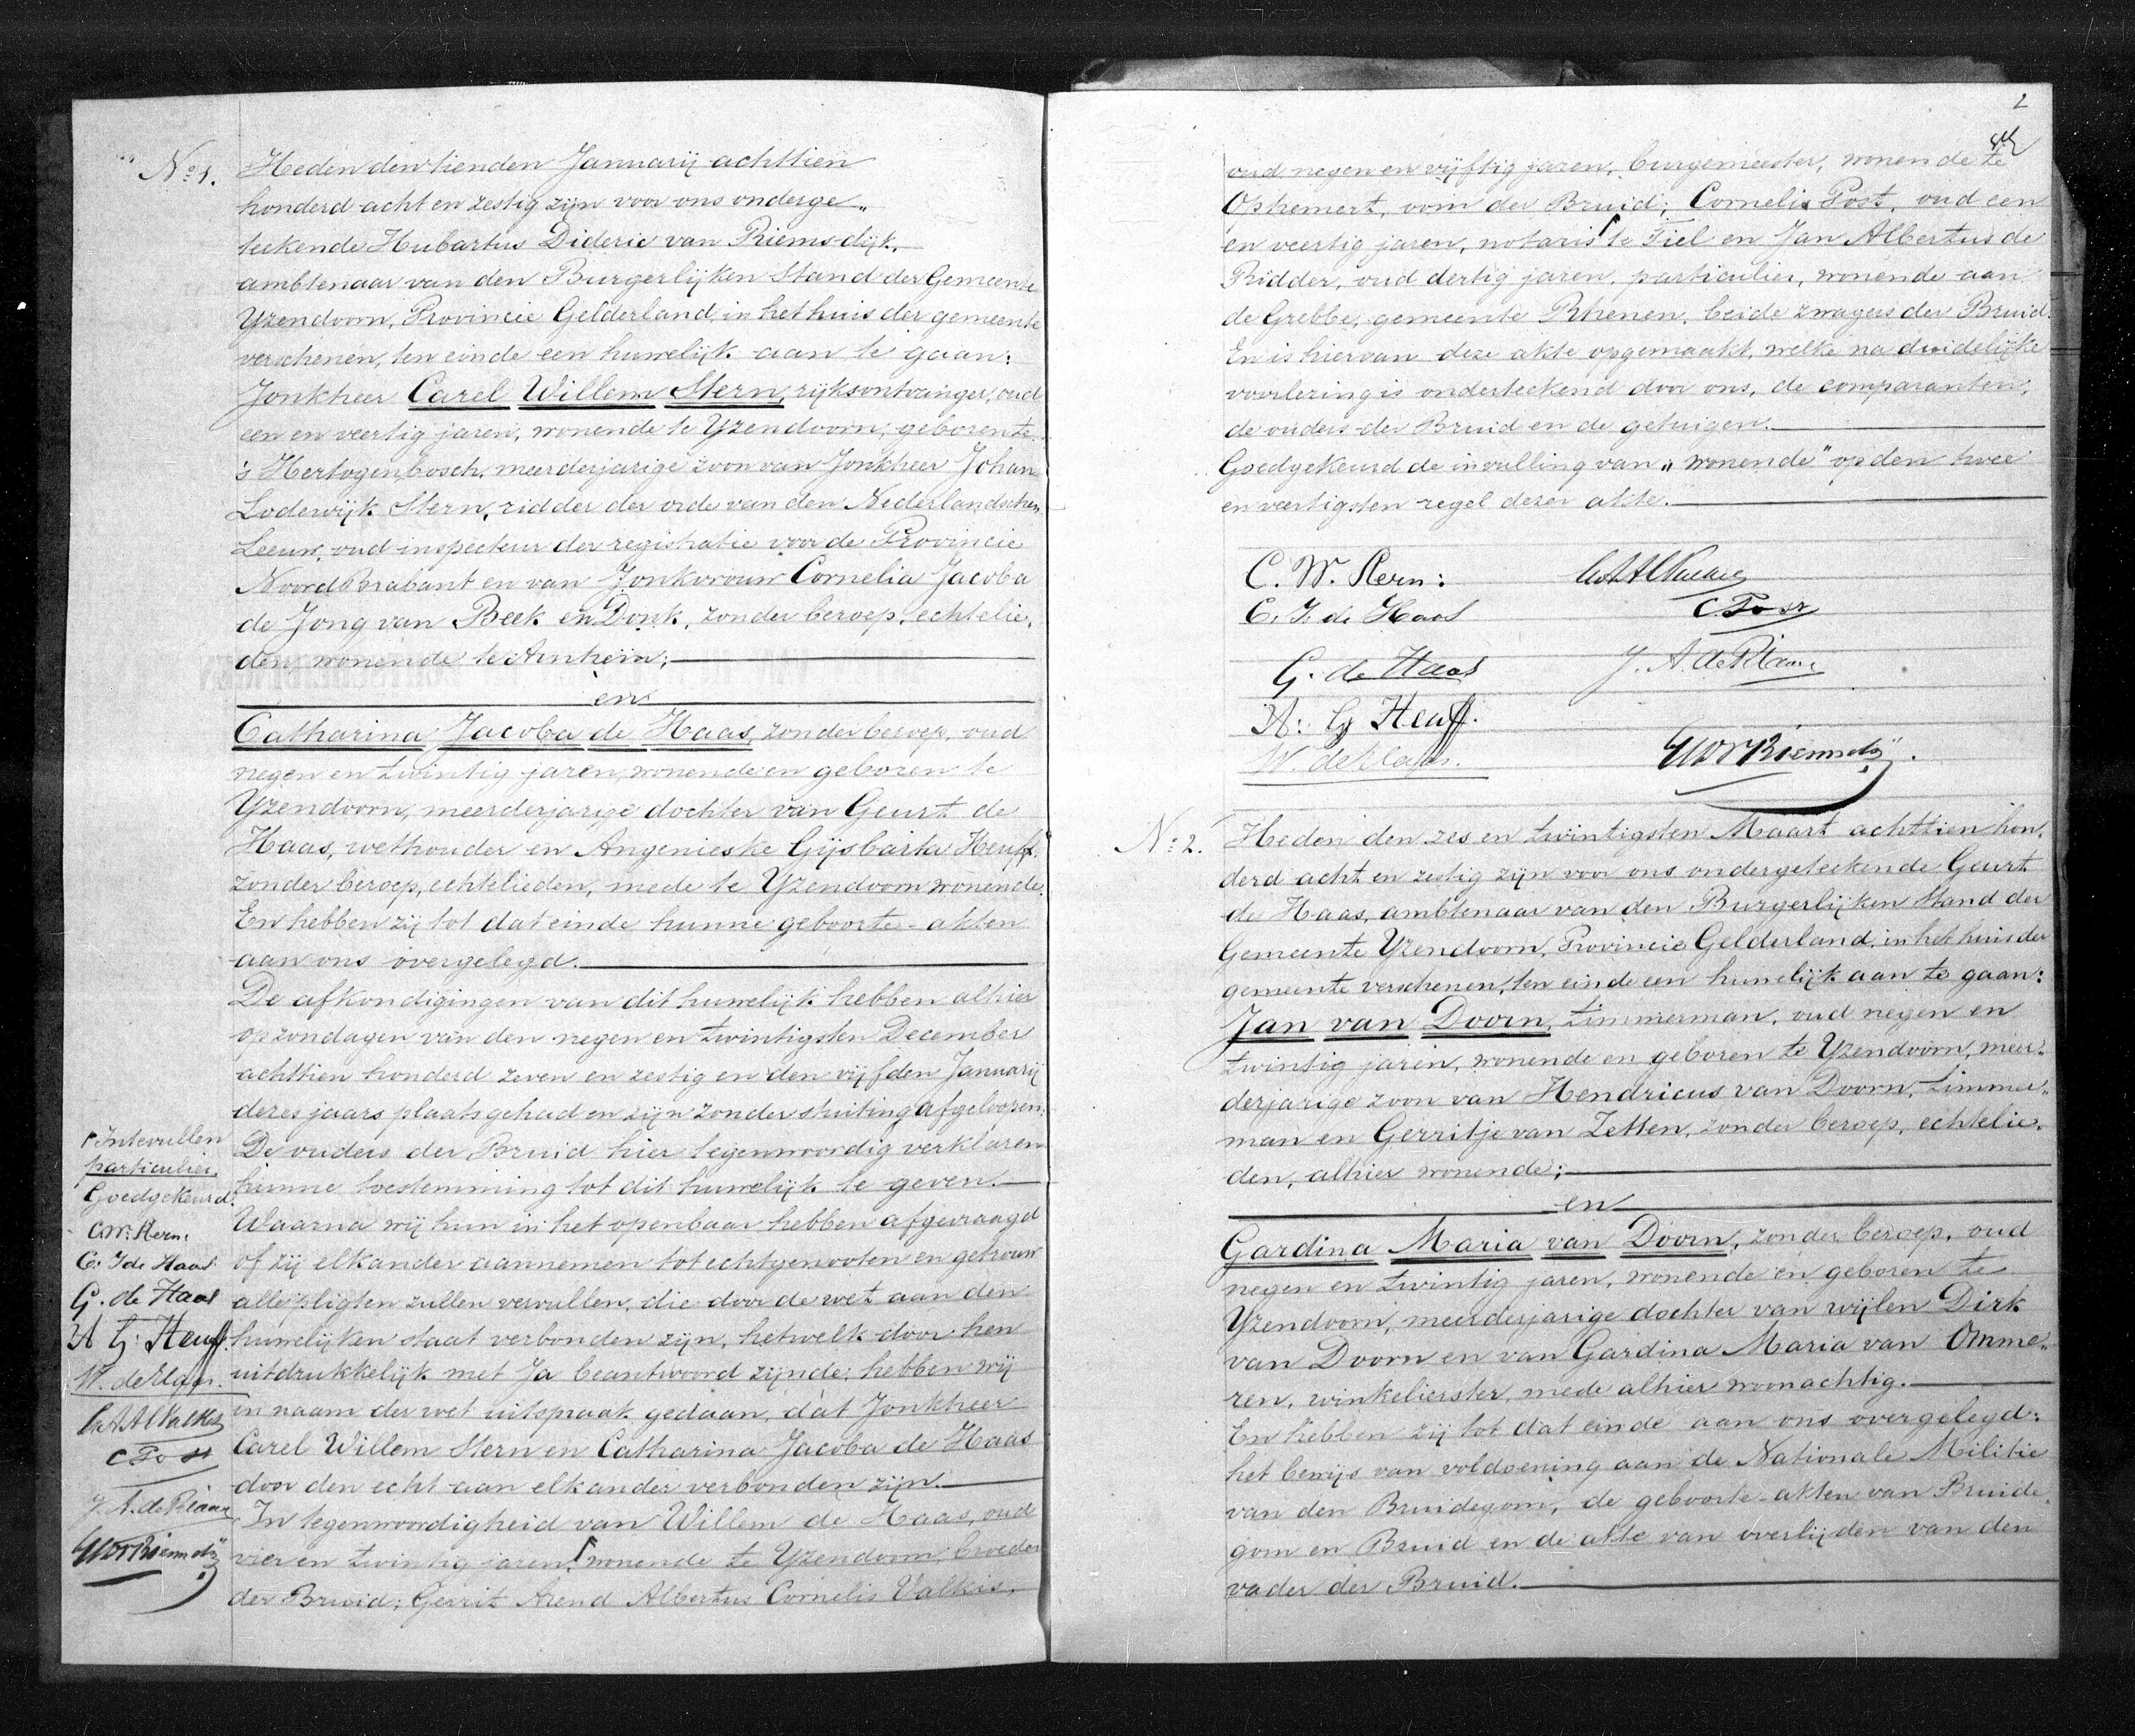 No 1.
Heden den tienden Januarij achttien
honderd acht en zestig zijn voor ons onderge„
teekende Hubartus Dideric van Riemsdijk,
ambtenaar van den Burgerlijken Stand der Gemeente
Yzendoorn, Provincie Gelderland, in het huis der gemeente
verschenen, ten einde een huwelijk aan te gaan:
Jonkheer Carel Willem Stern, rijksontvanger, oud
een en veertig jaren, wonende te Yzendoorn, geboren te
's Hertogenbosch, meerderjarige zoon van Jonkheer Johan
Lodewijk Stern, ridder der orde van den Nederlandschen
Leeuw, oud inspecteur der registratie voor de Provincie
Noord Brabant en van Jonkvrouw Cornelia Jacoba
de Jong van Beek en Donk, zonder beroep, echtelie„
den, wonende te Arnhem;
en
Catharina Jacoba de Haas, zonder beroep, oud
negen en twintig jaren, wonende en geboren te
Yzendoorn, meerderjarige dochter van Geurt de
Haas, wethouder en Angenieske Gijsbarta Heuff,
zonder beroep, echtelieden, mede te Yzendoorn wonende.
En hebben zij tot dat einde hunne geboorte-akten
aan ons overgelegd.
De afkondigingen van dit huwelijk hebben alhier
op zondagen van den negen en twintigsten December
achttien honderd zeven en zestig en den vijfden Januarij
dezes jaars plaats gehad en zijn zonder stuiting afgeloopen.
De ouders der Bruid hier tegenwoordig verklaren
hunne toestemming tot dit huwelijk te geven.
Waarna wij hun in het openbaar hebben afgevraagd
of zij elkander aannemen tot echtgenooten en getrouw
alle pligten zullen vervullen, die door de wet aan den
huwelijken staat verbonden zijn, hetwelk door hen
uitdrukkelijk met Ja beantwoord zijnde, hebben wij
in naam der wet uitspraak gedaan, dat Jonkheer
Carel Willem Stern en Catharina Jacoba de Haas
door den echt aan elkander verbonden zijn.
In tegenwoordigheid van Willem de Haas, oud
vier en twintig jaren, wonende te Yzendoorn, broeder
der Bruid; Gerrit Arend Albertus Cornelis Valkis,
Intevullen
particulier.
Goedgekeurd.
C.W. Stern.
C. J. de Haas
G. de Haas
A G: Heuff.
W. de Haas.
C Post
J. A. de Ridder
2
oud negen en vijftig jaren, burgemeester, wonende te
Ophemert, oom der Bruid; Cornelis Post, oud een
en veertig jaren, notaris te Tiel en Jan Albertus de
Ridder, oud dertig jaren, particulier, wonende aan
de Grebbe, gemeente Rhenen, beide zwagers der Bruid.
En is hiervan deze akte opgemaakt, welke na duidelijke
voorlezing is onderteekend door ons, de comparanten,
de ouders der Bruid en de getuigen.
Goedgekeurd de invulling van „wonende" op den twee
en veertigsten regel dezer akte.
C. W. Stern:
C. J. de Haas
C Post
G. de Haas
J. A. de Ridder
A: G Heuff.
W. de Haas.
No 2.
Heden den zes en twintigsten Maart achttien hon„
derd acht en zestig zijn voor ons ondergeteekende Geurt
de Haas, ambtenaar van den Burgerlijken Stand der
Gemeente Yzendoorn, Provincie Gelderland, in het huis der
gemeente verschenen, ten einde een huwelijk aan te gaan:
Jan van Doorn, timmerman, oud negen en
twintig jaren, wonende en geboren te Yzendoorn, meer„
derjarige zoon van Hendricus van Doorn, timmer„
man en Gerritje van Zetten, zonder beroep, echtelie„
den, alhier wonende;
en
Gardina Maria van Doorn, zonder beroep, oud
negen en twintig jaren, wonende en geboren te
Yzendoorn, meerderjarige dochter van wijlen Dirk
van Doorn en van Gardina Maria van Omme„
ren, winkelierster, mede alhier woonachtig.
En hebben zij tot dat einde aan ons overgelegd:
het bewijs van voldoening aan de Nationale Militie
van den Bruidegom, de geboorte-akten van Bruide„
gom en Bruid en de akte van overlijden van den
vader der Bruid.